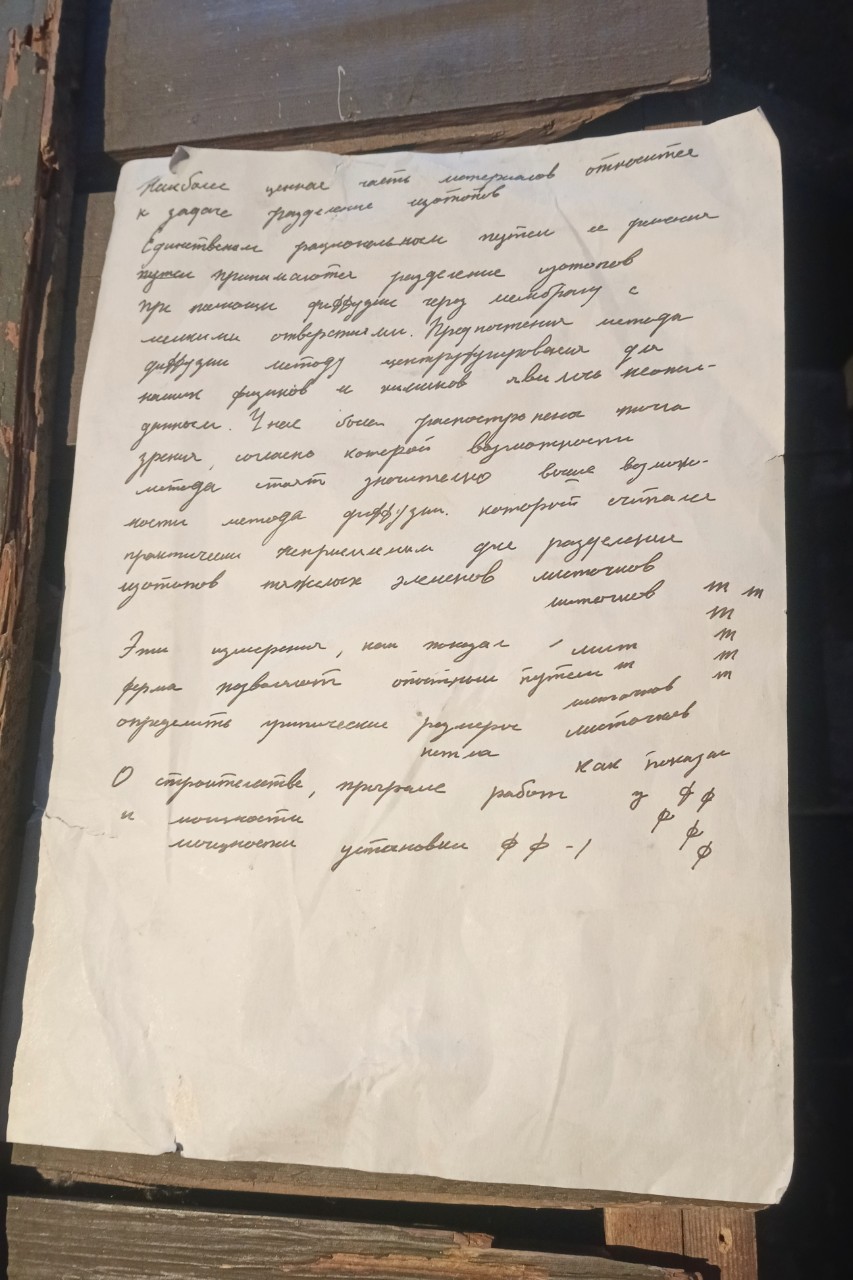 Наиболее ценная часть материалов относится
к задаче разделение изотопов
Единственным рациональным путем ее решения
путем принимаются разделение изотопов
при помощи диффузии через мембрану с
мелкими отверстиями. Предпочтения метода
диффузии методу центрифугирования для
наших физиков и химиков явилось неожи-
данным. У нас была распостронена точка
зрения, согласно которой возможности
метода стоят значительно выше возмож-
ности метода диффузии. который считался
практически неприемлим для разделения
изотопов тяжелых эленов листочков
листочков т т
т
Эти измерения, как показал лист т
ферма позволяют опытным путем т т
т
листочков
определить критические размеров листочков
как показал
О строительстве, програме работ у ф ф
и мощности ф ф
мощности установки ф ф -1 ф